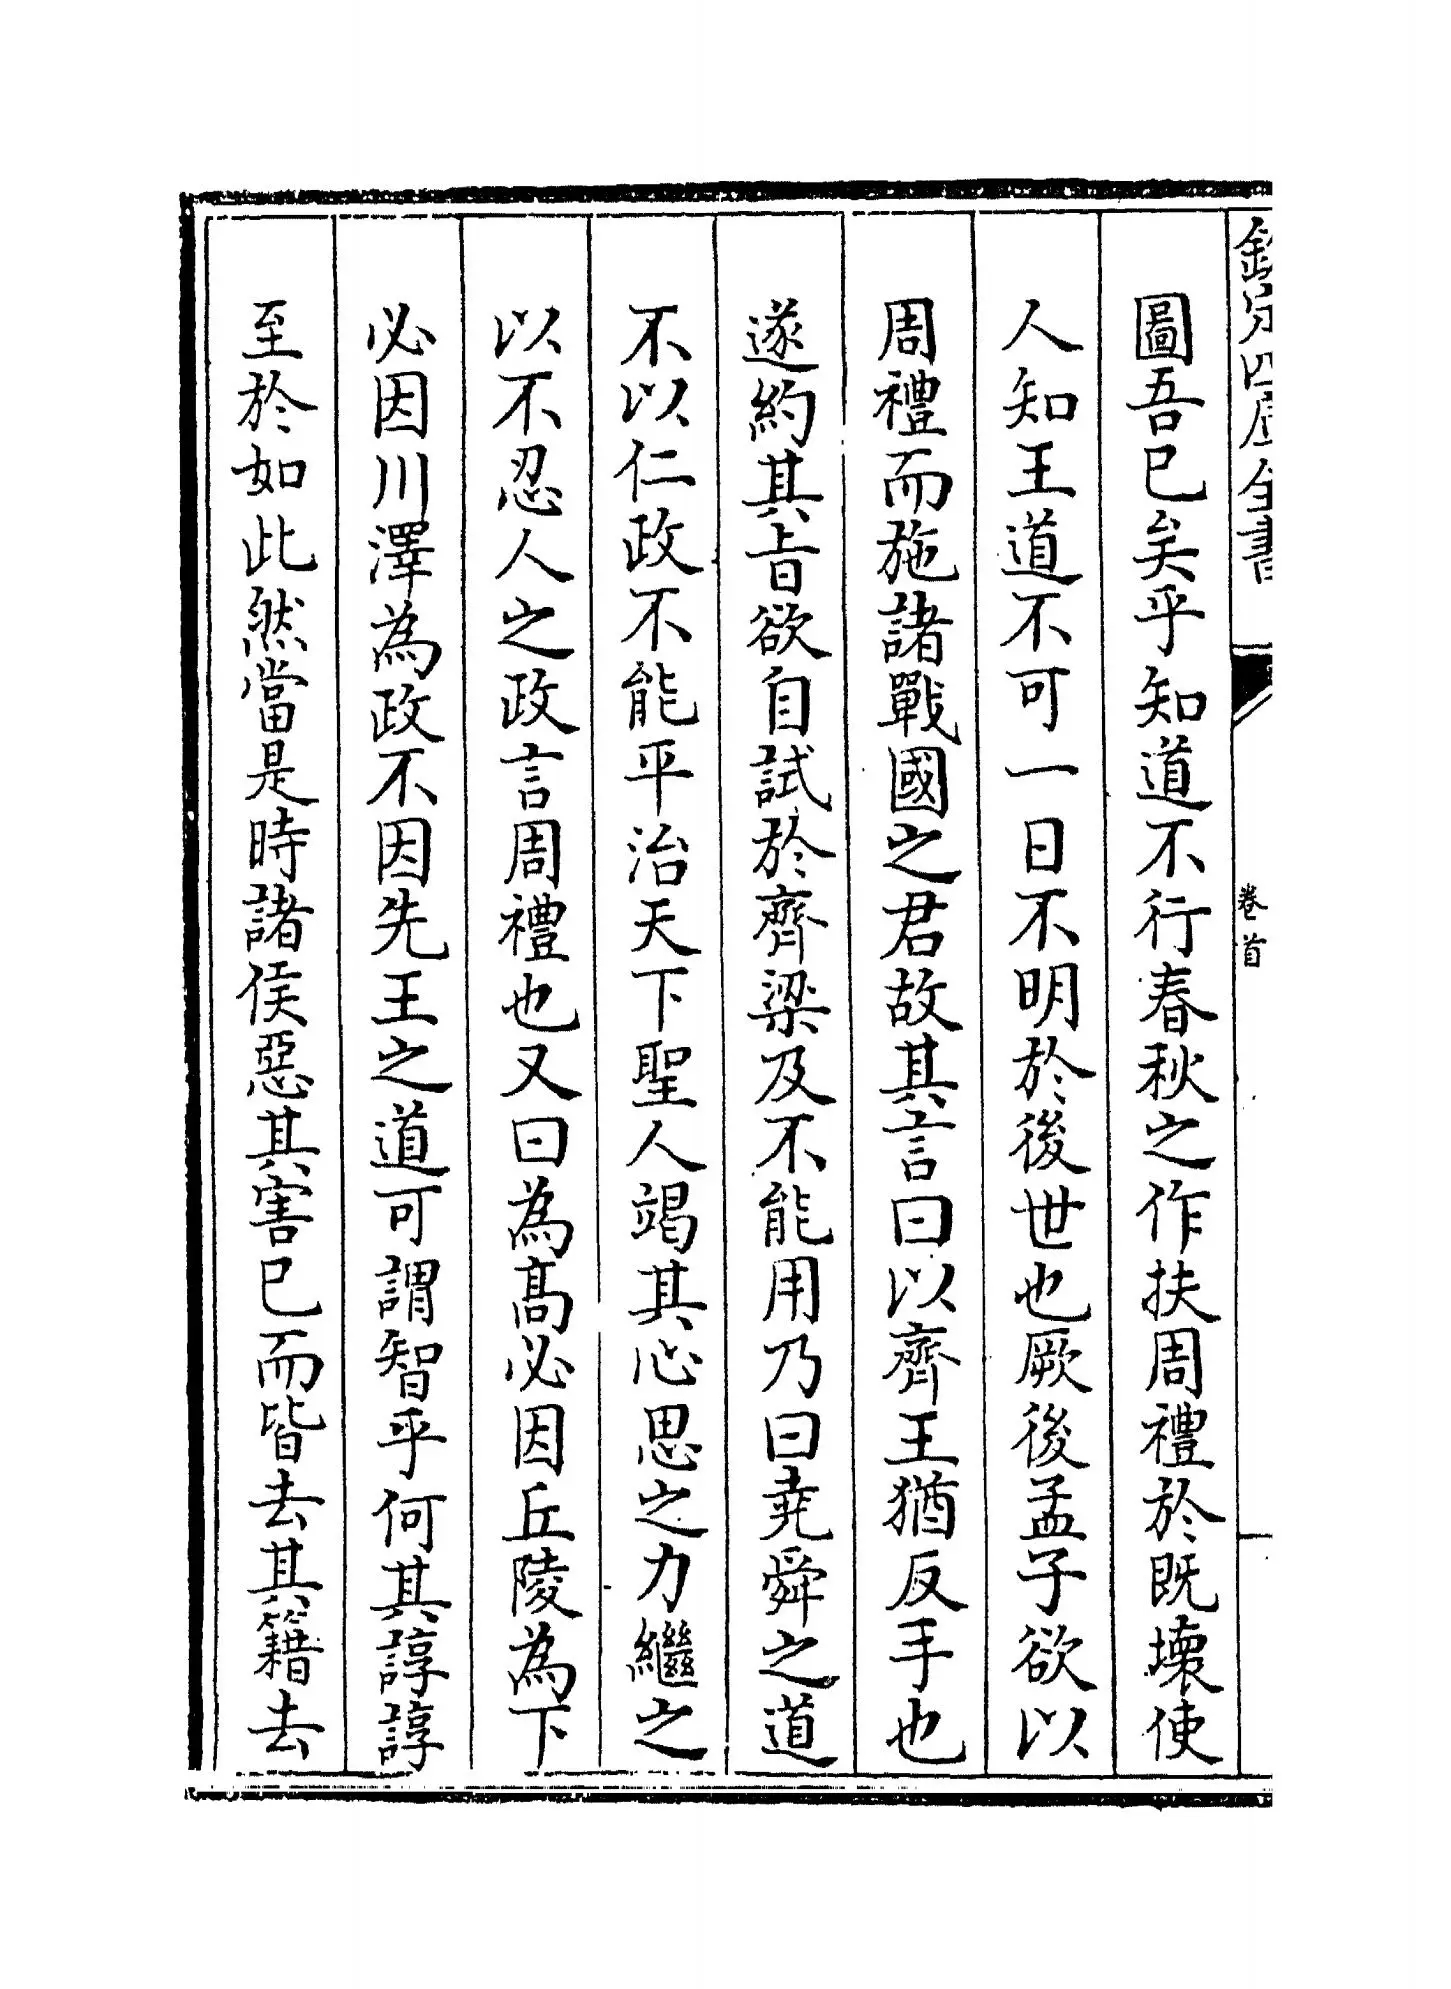 欽定四庫全書
卷首
圖吾已矣乎知道不行春秋之作扶周禮於既壞使
人知王道不可一日不明於後世也厥後孟子欲以
周禮而施諸戰國之君故其言曰以齊王猶反手也
遂約其旨欲自試於齊梁及不能用乃曰堯舜之道
不以仁政不能平治天下聖人竭其心思之力繼之
以不忍人之政言周禮也又曰為高必因丘陵為下
必因川澤為政不因先王之道可謂智乎何其諄諄
至於如此然當是時諸侯惡其害已而皆去其籍去